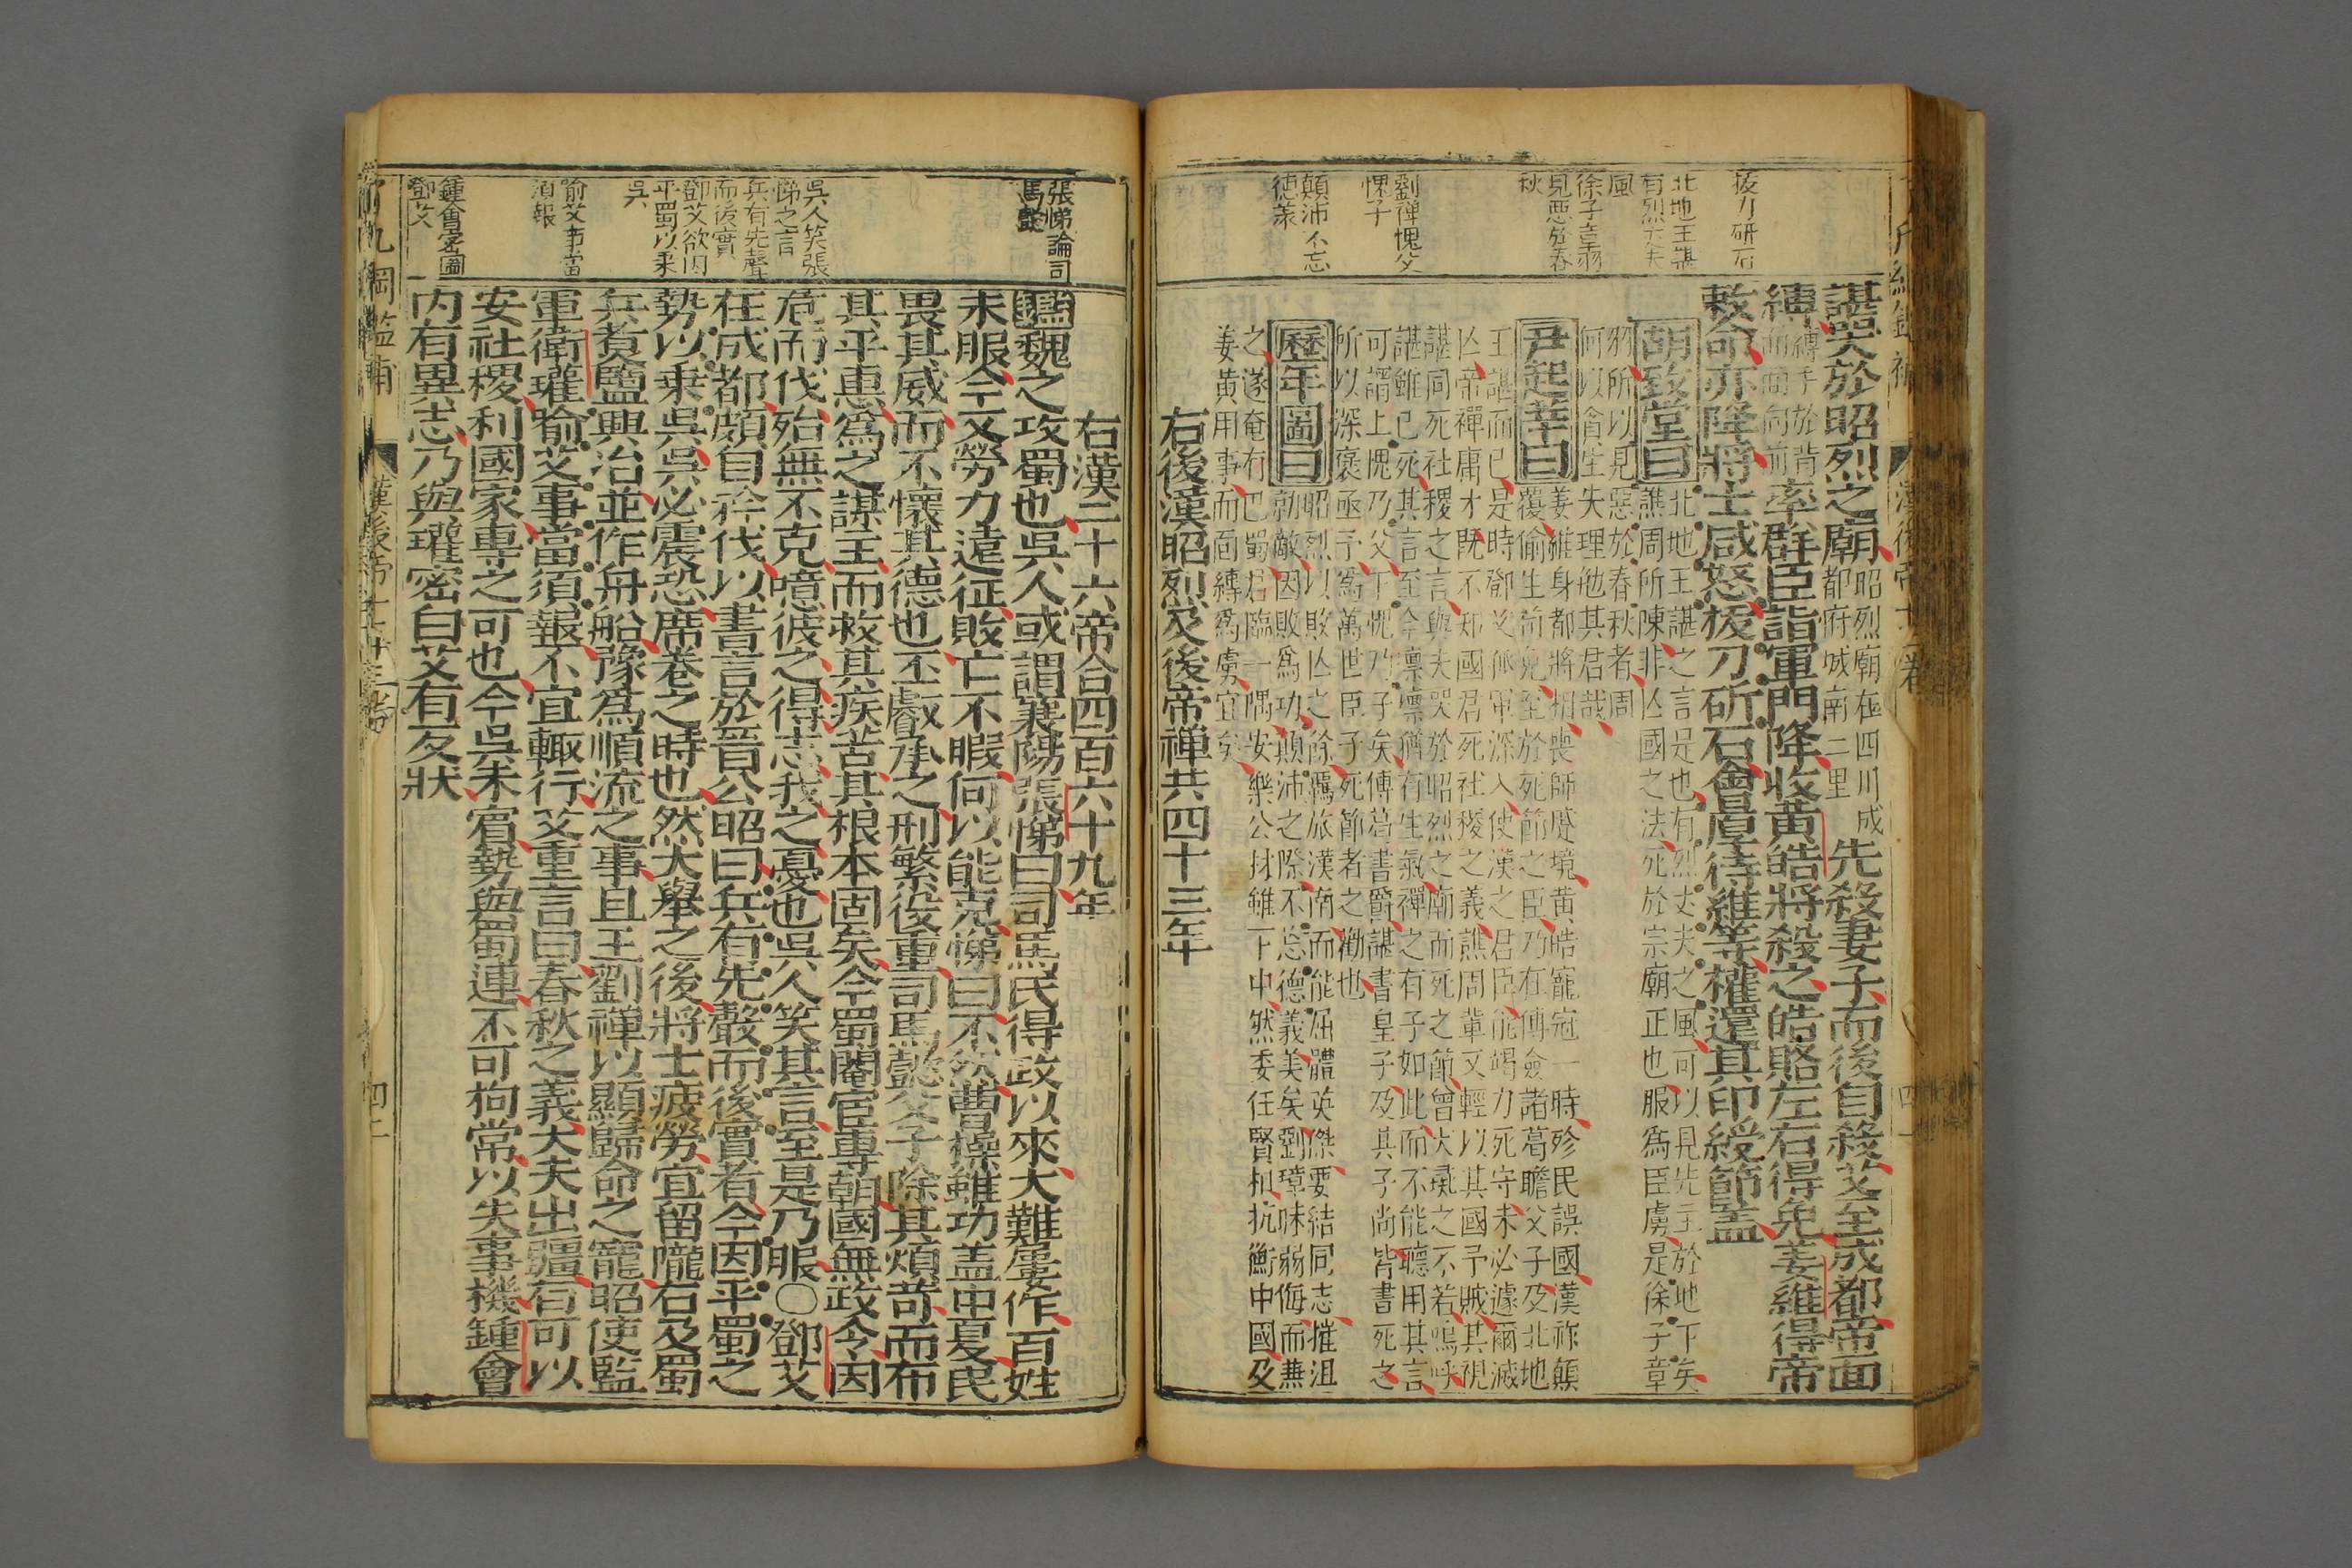 拔刀斫石
北地王諶
有烈丈夫
風
徐子章羽
見惡於春
秋
劉禪愧父
愧子
顛沛不忘
德義
諶哭於昭烈之廟昭烈廟在四川成
都府城南二里先殺妻子而後自殺艾至成都帝面
縛縛手於背
而面向前率群臣詣軍門降收黃皓將殺之皓賂左右得免姜維得帝
敕命亦降將士咸怒拔刀斫石會厚待維等權還其印綬節蓋
胡致堂曰北地王諶之言是也有烈丈夫之風可以見先主於地下矣
譙周所陳非亡國之法死於宗廟正也服為臣虜是徐子章
羽所以見惡於春秋者周
何以貪生失理他其君哉
尹起莘曰姜維身都將相喪師蹙境黃皓寵冠一時殄民誤國漢祚顛
覆偷生苟免至於死節之臣乃在傅僉諸葛瞻父子及北地
王諶而已是時鄧艾孤軍深入使漢之君臣能竭力死守未必遽爾滅
亡帝禪庸才既不知國君死社稷之義譙周輩又輕以其國予賊其視
諶同死社稷之言與夫哭於昭烈之廟而死之節曾犬彘之不若嗚呼
諶雖已死其言至今凜凜猶有生氣禪之有子如此而不能聽用其言
可謂上愧乃父下愧乃子矣傅葛書爵諶書皇子及其子尚皆書死之
所以深褒亟予為萬世臣子死節者之勸也
歷年圖曰昭烈以敗亡之餘羈旅漢南而能屈體英傑要結同志摧沮
勍敵因敗為功顛沛之際不忘德義美矣劉璋昧弱侮而兼
之遂奄有巴蜀君臨一隅安樂公材雖下中然委任賢相抗衡中國及
姜黃用事而面縛為虜宜矣
右後漢昭烈及後帝禪共四十三年
張悌論司
馬懿
吳人笑張
悌之言
兵有先聲
而後實
鄧艾欲因
平蜀以乘
吳
喻艾事當
須報
鍾會密圖
鄧艾
右漢二十六帝合四百六十九年
鑑魏之攻蜀也吳人或謂襄陽張悌曰司馬氏得政以來大難屢作百姓
未服今又勞力遠征敗亡不暇何以能克悌曰不然曹操雖功蓋中夏民
畏其威而不懷其德也丕叡承之刑繁役重司馬懿父子除其煩苛而布
其平惠為之謀主而救其疾苦其根本固矣今蜀閹宦專朝國無政令因
危而伐殆無不克噫彼之得志我之憂也吳人笑其言至是乃服〇鄧艾
在成都頗自矜伐以書言於晉公昭曰兵有先聲而後實者今因平蜀之
勢以乘吳吳必震恐席卷之時也然大舉之後將士疲勞宜留隴右及蜀
兵煑鹽興冶並作舟船豫為順流之事且王劉禪以顯歸命之寵昭使監
軍衛瓘喻艾事當須報不宜輒行艾重言曰春秋之義大夫出疆有可以
安社稷利國家專之可也今吳未賓勢與蜀連不可拘常以失事機鍾會
內有異志乃與瓘密白艾有反狀